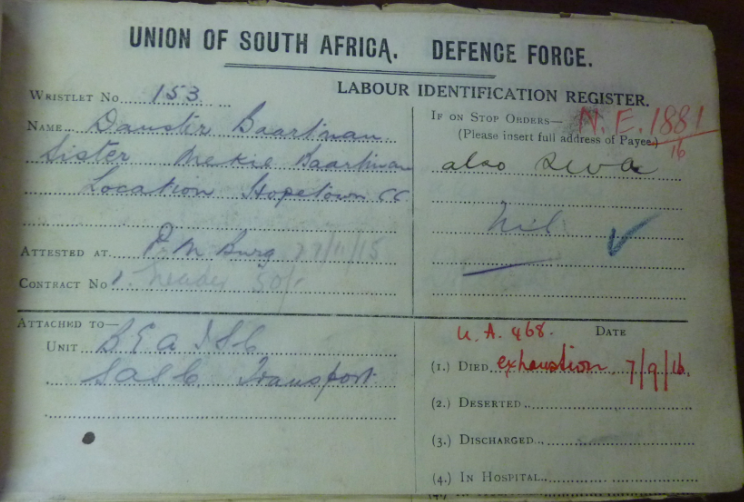 UNION OF SOUTH AFRICA. DEFENCE FORCE.
LABOUR IDENTIFICATION REGISTER.
WRISTLET No 153
NAME Danster Baartman
Sister Mekie Baartman
Location Hopetown CC
ATTESTED AT P.M. Burg 27/11/15
CONTRACT No leader 50/-
ATTACHED TO—
UNIT B E A
SASC Transport
IF ON STOP ORDERS— N.E. 1881
(Please insert full address of Payee.) 16
also
Nil
U.A. 468. DATE
(1.) DIED exhaustion 7/9/16.
(2.) DESERTED
(3.) DISCHARGED
(4.) IN HOSPITAL